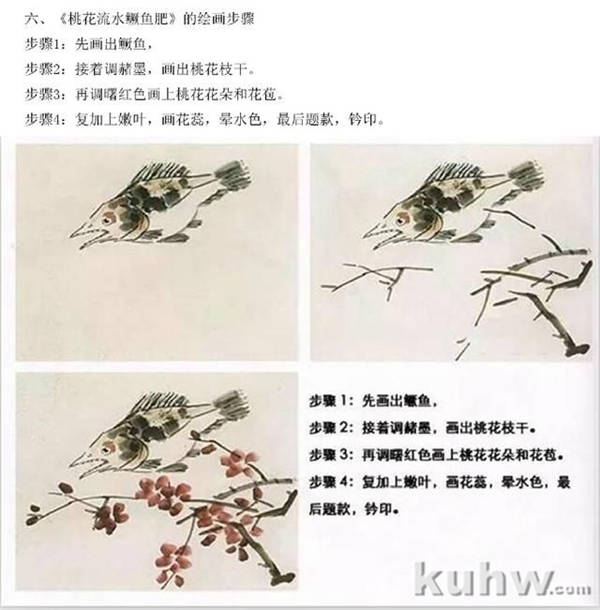 六、《桃花流水鳜鱼肥》的绘画步骤
步骤1：先画出鳜鱼，
步骤2：接着调赭墨，画出桃花枝干。
步骤3：再调曙红色画上桃花花朵和花苞。
步骤4：复加上嫩叶，画花蕊，晕水色，最后题款，钤印。
步骤 1：先画出鳜鱼，
步骤 2：接着调赭墨，画出桃花枝干。
步骤 3：再调曙红色画上桃花花朵和花苞。
步骤 4：复加上嫩叶，画花蕊，晕水色，最
后题款，钤印。
kuhw.com